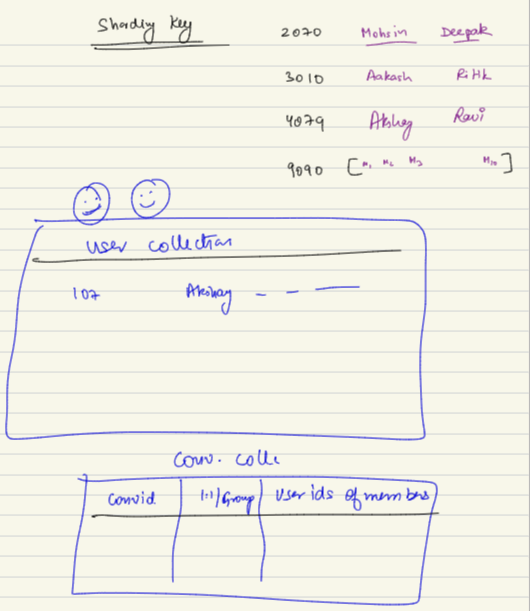 Sharding Key
2070 Mohsin Deepak
3010 Aakash Ritik
4079 Akshay Ravi
9090 [M1 M2 M3 M10]
user collection
107 Akshay - - —
Conv. Colle
Convid 1:1/Group User ids of members